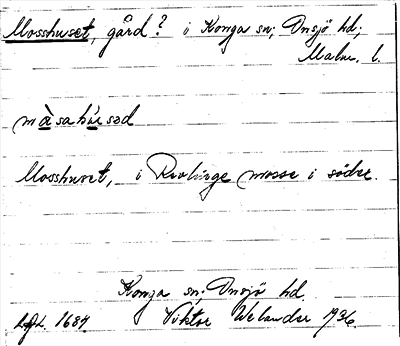 Mosshuset, gård? i Konga sn; Onsjö hd;
Malm. l.
màsahúsəd
Mosshuset, i Revlinge mosse i söder.
Konga sn; Onsjö hd.
LgL. 1687. Viktor Welander 1936.